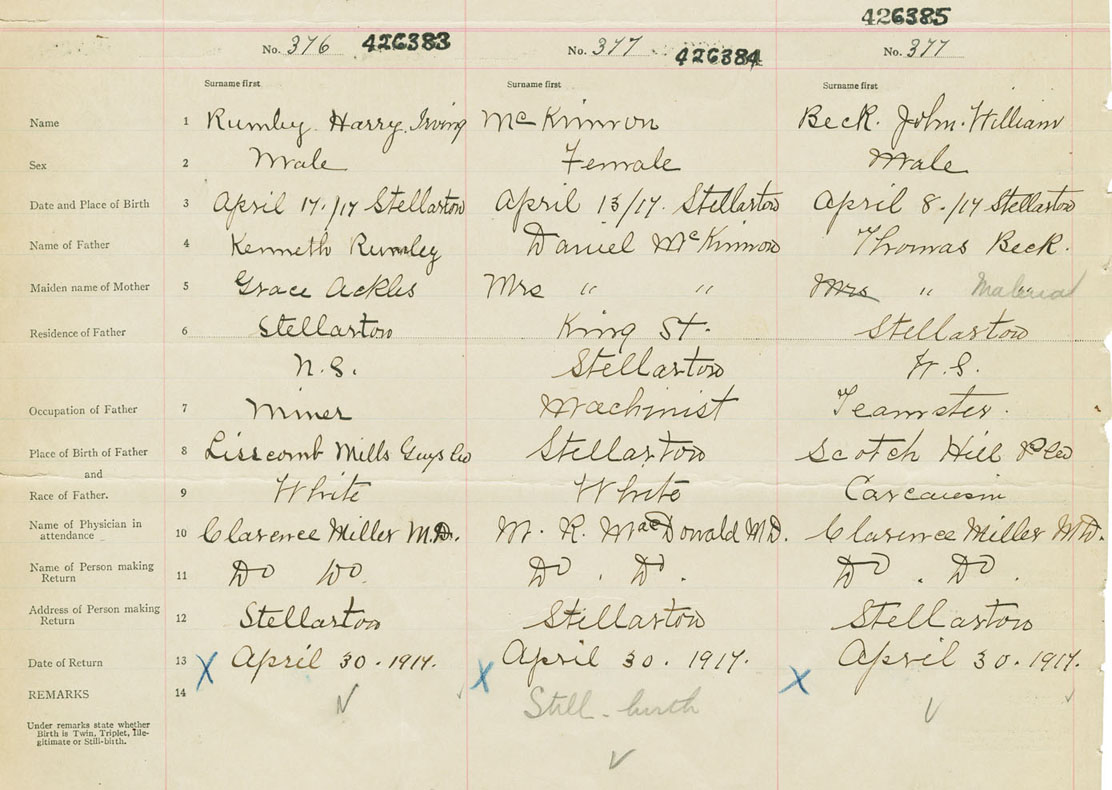 426385
No. 376 426383 No. 377 426384 No. 377
Surname first Surname first Surname first
Name 1 Rumley Harry Irving McKinnon Beck. John. William
Sex 2 Male Female Male
Date and Place of Birth 3 April 17./17 Stellarton April 13/17. Stellarton April 8./17 Stellarton
Name of Father 4 Kenneth Rumley Daniel McKinnon Thomas Beck.
Maiden name of Mother 5 Grace Ackles Mrs " " Mrs "
Residence of Father 6 Stellarton King St. Stellarton
N.S. Stellarton N.S.
Occupation of Father 7 Miner Machinist Teamster.
Place of Birth of Father 8 Liscomb Mills Guys Co Stellarton Scotch Hill P Co
and
Race of Father. 9 White White
Name of Physician in
attendance 10 Clarence Miller M.D. M. R. MacDonald M.D. Clarence Miller M.D.
Name of Person making
Return 11 Do Do Do . Do . Do . Do .
Address of Person making
Return 12 Stellarton Stellarton Stellarton
Date of Return 13 X April 30. 1917. X April 30. 1917. X April 30. 1917.
REMARKS 14 Still-birth
Under remarks state whether
Birth is Twin, Triplet, Ille-
gitimate or Still-birth.